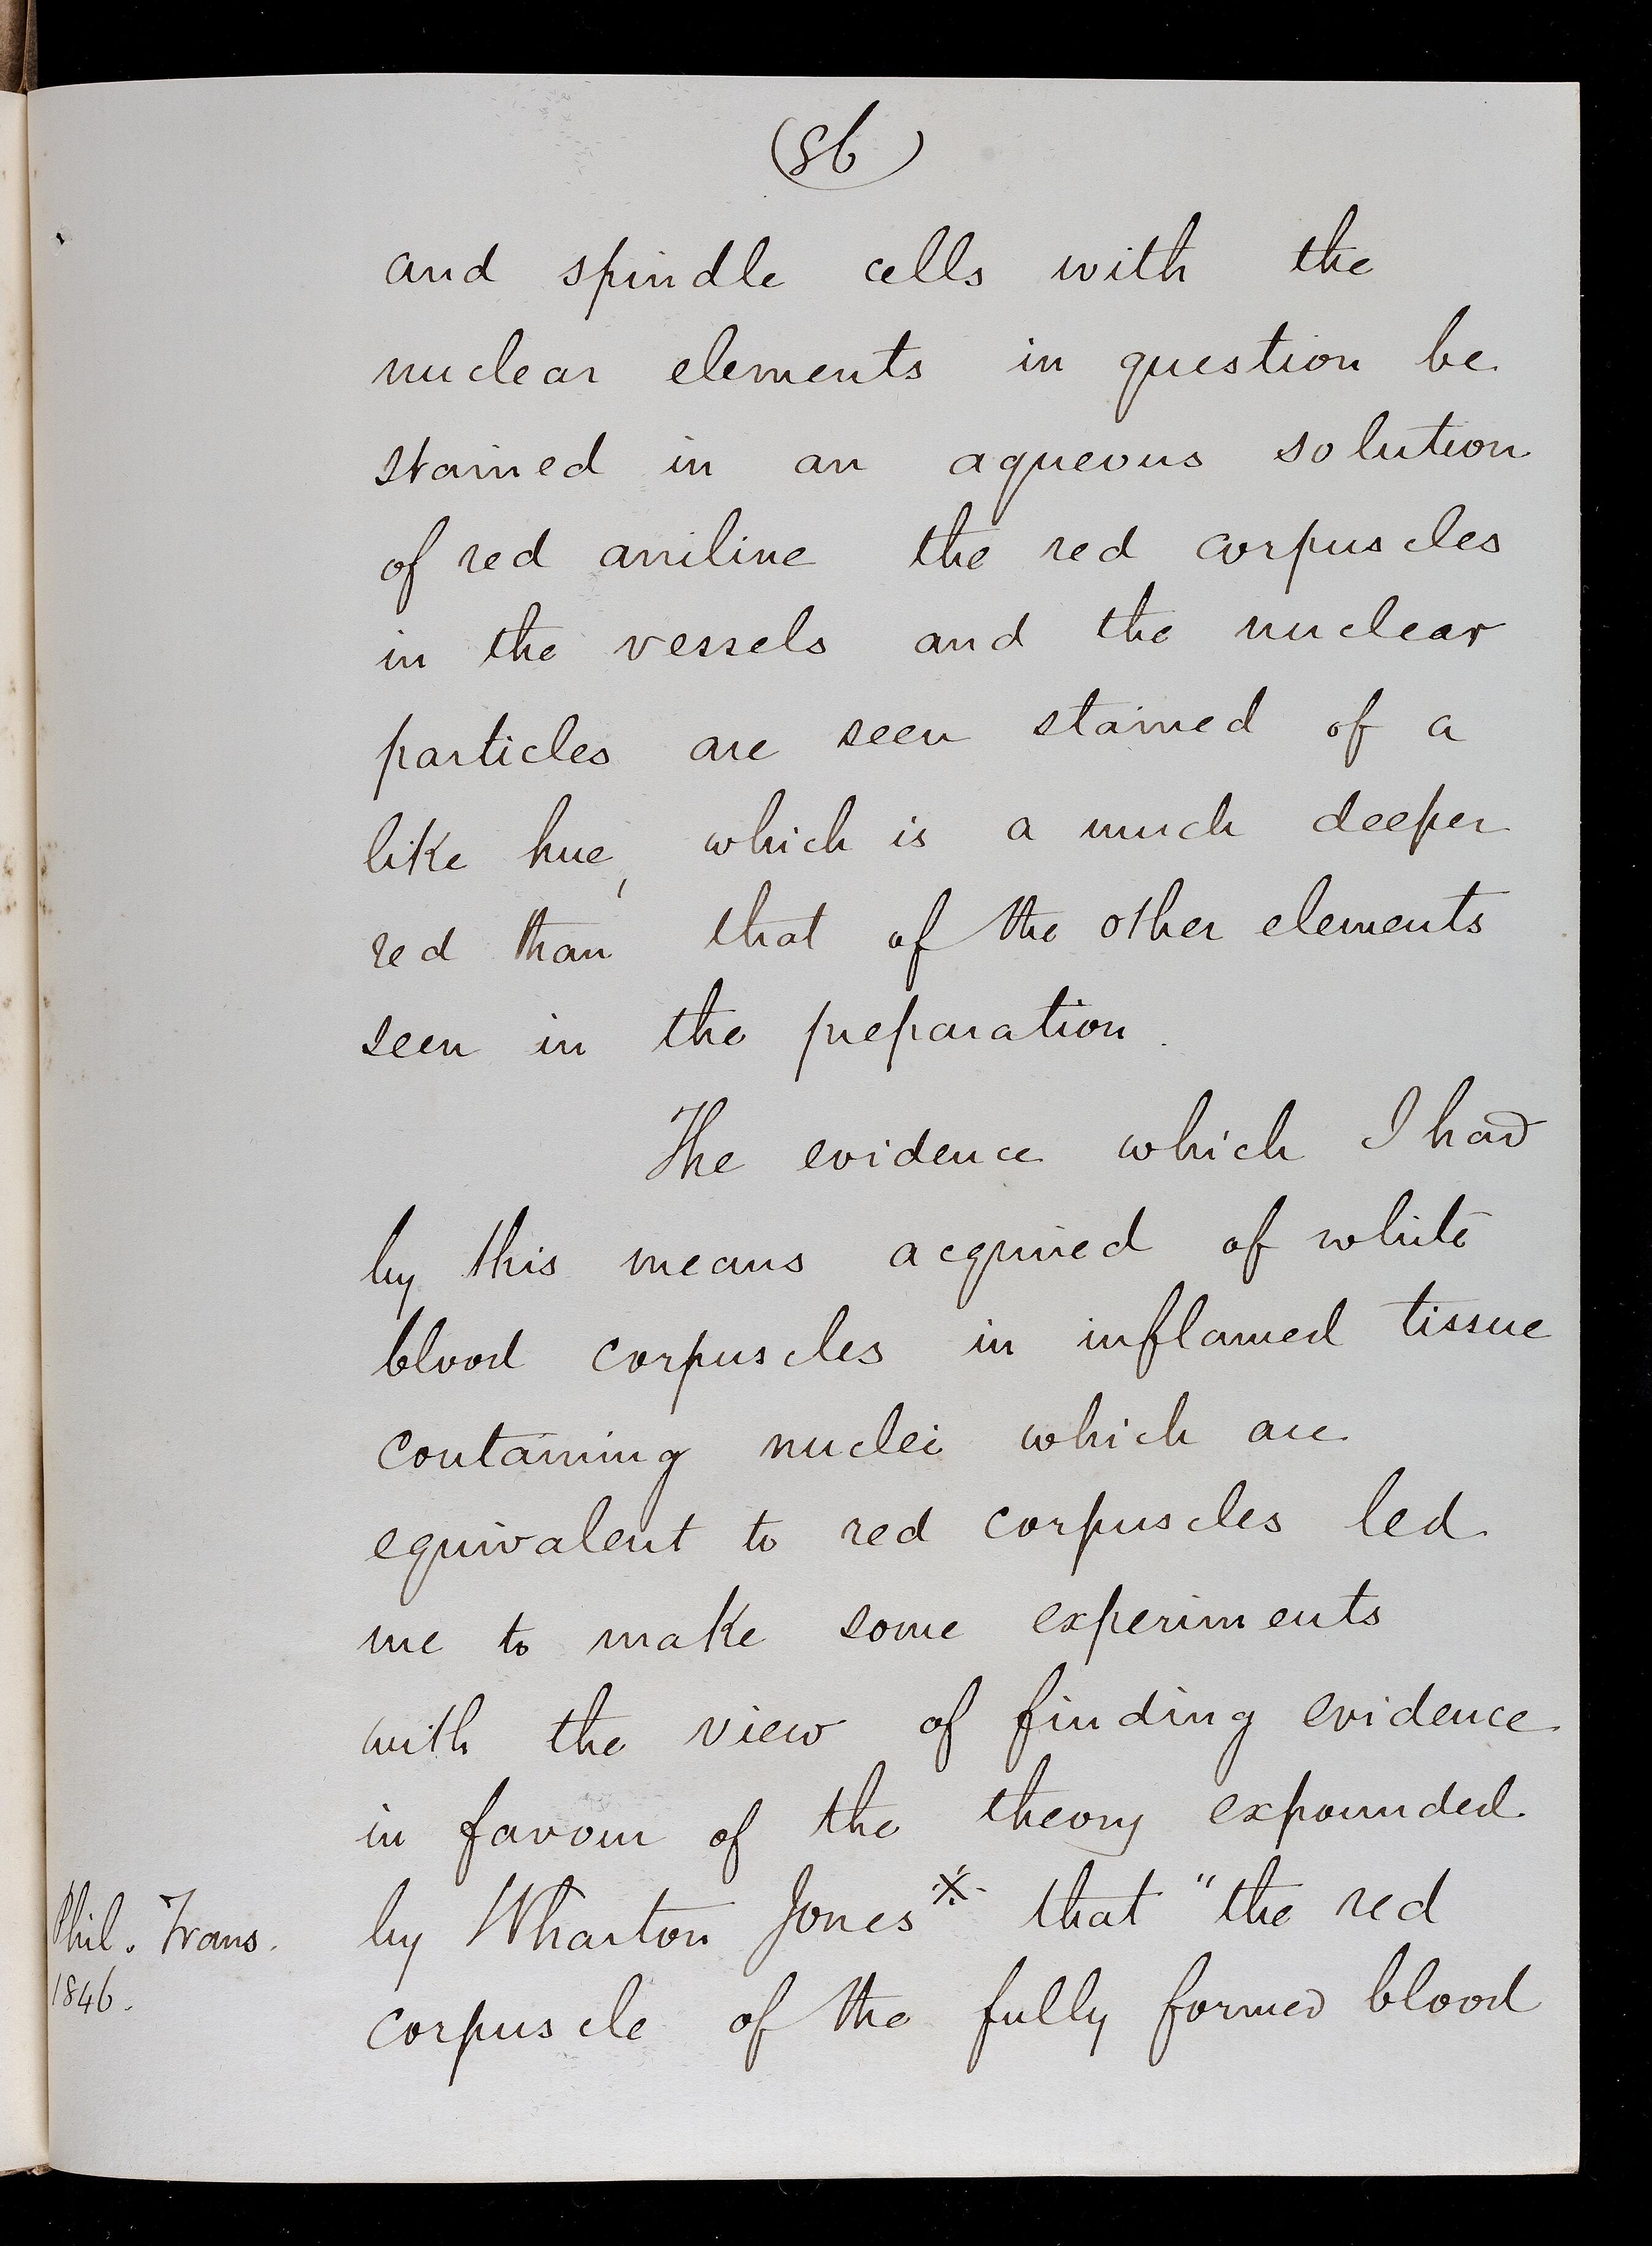 (86)
and spindle cells with the
nuclear elements in question be
stained in an aqueous solution
of red aniline the red corpuscles
in the vessels and the nuclear
particles are seen stained of a
like hue, which is a much deeper
red than that of the other elements
seen in the preparation.
The evidence which I had
by this means acquired of white
blood corpuscles in inflamed tissue
containing nuclei which are
equivalent to red corpuscles led
me to make some experiments
with the view of finding evidence
in favour of the theory expounded
by Wharton Jones※ that "the red
corpuscle of the fully formed blood
Phil. Trans.
1846.